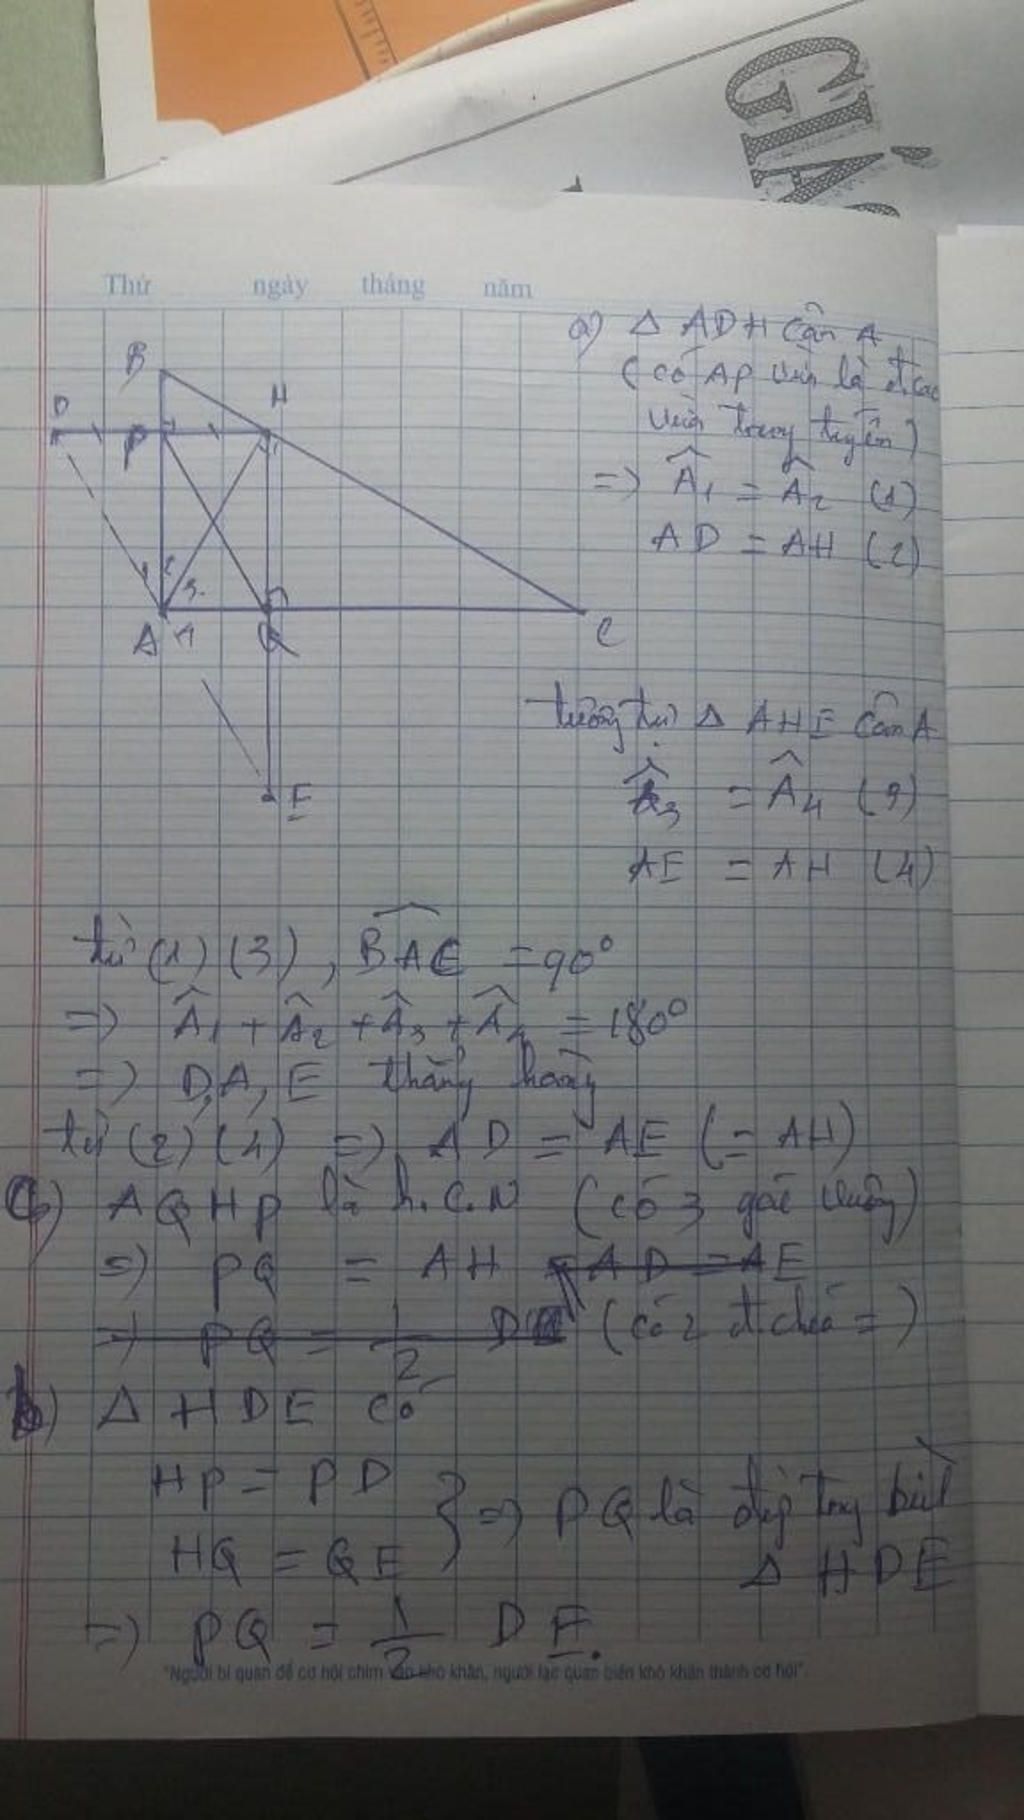 GIÁ
Thứ ngày tháng năm
B
D P H
A Q C
E
a) Δ ADH cân A
(có AP vừa là đ.cao
vừa trung tuyến)
=> Â₁ = Â₂ (1)
AD = AH (2)
tương tự Δ AHE cân A
Â₃ = Â₄ (3)
AE = AH (4)
từ (1) (3), BAC = 90°
=> Â₁ + Â₂ + Â₃ + Â₄ = 180°
=> D, A, E thẳng hàng
từ (2) (4) => AD = AE (= AH)
c) AQHP là h.C.N (có 3 góc vuông)
=> PQ = AH = AD = AE
=> PQ = 1/2 DE (có 2 đ.chéo =)
b) Δ HDE có
HP = PD
HQ = QE } => PQ là đg trg bình
Δ HDE
=> PQ = 1/2 DE.
"Người bi quan để cơ hội chìm vào khó khăn, người lạc quan biến khó khăn thành cơ hội".